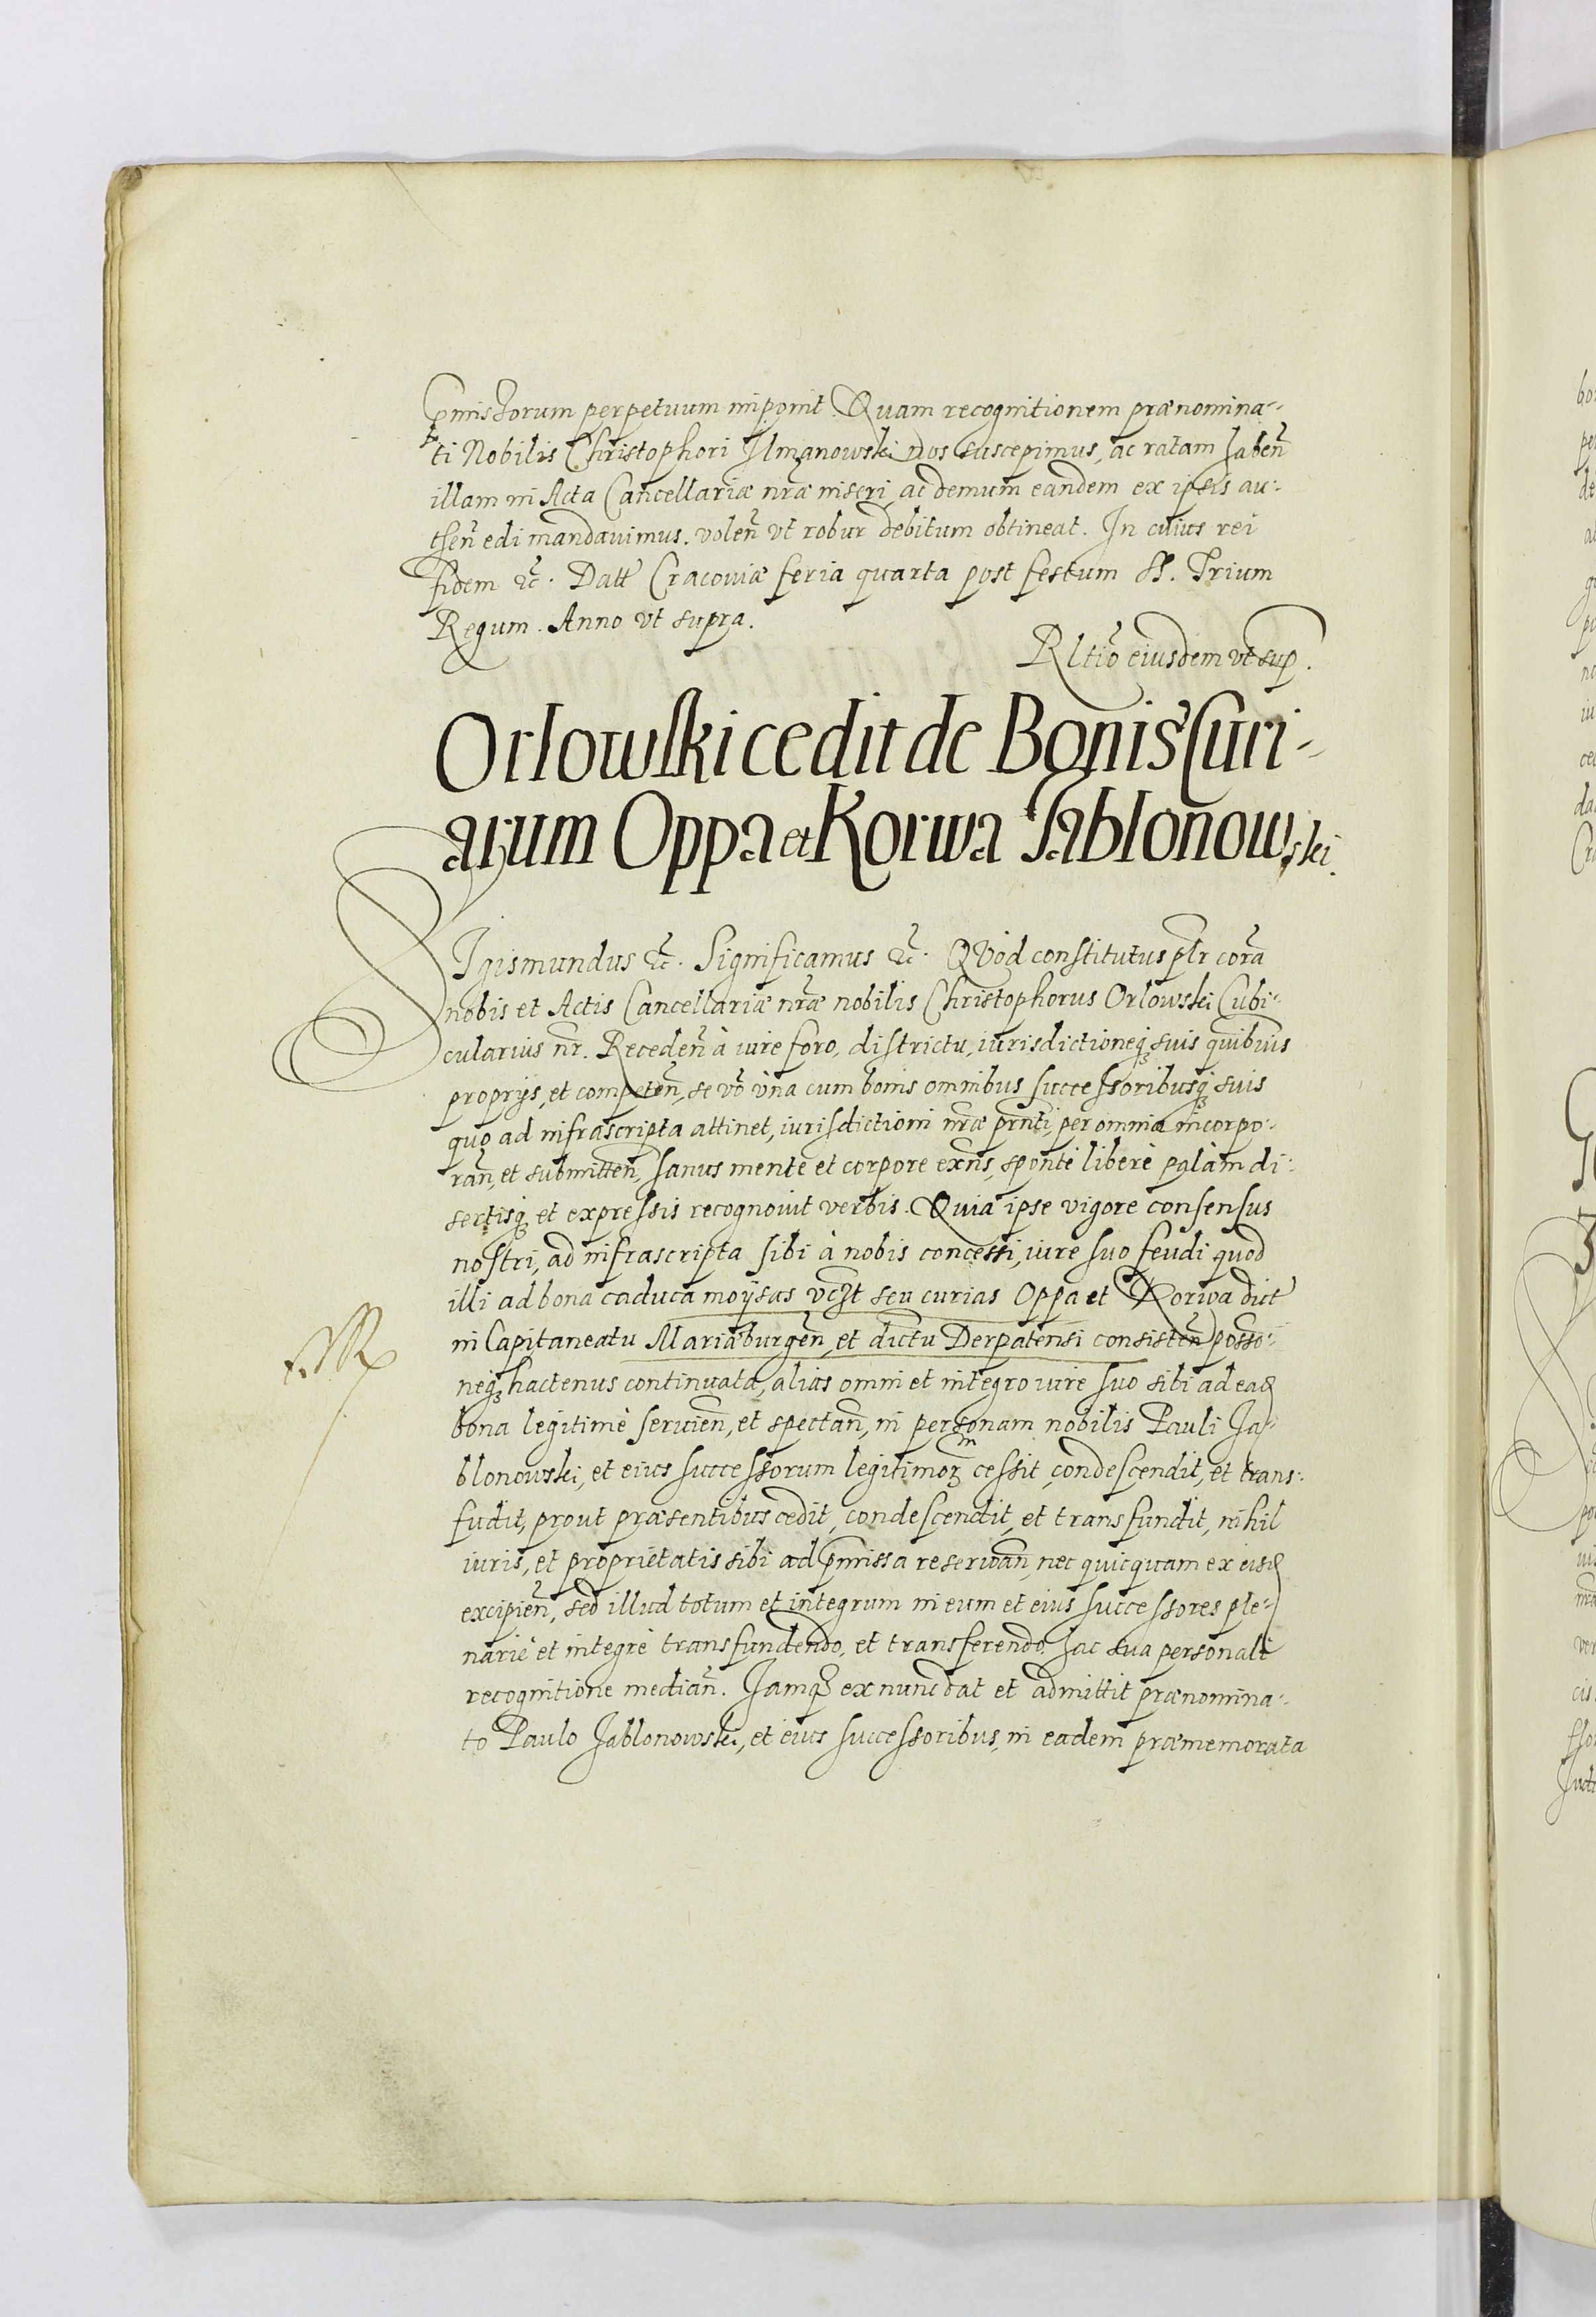 p̄missorum perpetuum imponit. Quam recognitionem prænomina-
ti Nobilis Christophori Ilmanowski nos suscepimus, ac ratam haben̄
illam in Acta Cancellariæ nr̄æ inseri, ac demum eandem ex ipsis au-
then̄ edi mandavimus. volen̄ vt robur debitum obtineat. In cuius rei
fidem ꝛc̄. Datt Cracoviæ feria quarta post festum SS. Trium
Regum. Anno vt supra.
Rltio eiusdem vt sup.
Orlowski cedit de Bonis Curi-
arum Oppa et Korwa Jablonowski.
SIgismundus ꝛc̄. Significamus ꝛc̄. Quod constitutus pl̄r corā
nobis et Actis Cancellariæ nr̄æ nobilis Christophorus Orlowski Cubi-
cularius nr̄. Receden̄ à iure foro, districtu, iurisdictioneq; suis quibuis
proprijs, et competen̄, se vō vna cum bonis omnibus successoribusq; suis
quo ad infrascripta attinet, iurisdictioni nr̄æ pr̄nti, per omnia incorpo-
ran̄, et submitten̄, sanus mente et corpore exn̄s, sponte libere palàm di-
sertisq; et expressis recognouit verbis. Quia ipse vigore consensus
nostri, ad infrascripta sibi à nobis concessi, iure suo feudi quod
illi ad bona caduca moysas vc̄st seu curias Oppa et Korwa dict
in Capitaneatu Mariæburgen̄, et dictu Derpatensi consisten̄ posso-
neq; hactenus continuata, alias omni et integro iure suo sibi ad ead
bona legitimè servien̄, et spectan̄, in personam nobilis Pauli Ja-
blonowski, et eius successorum legitimorꝫ cessit, condescendit, et trans-
fudit, prout præsentibus cedit, condescendit, et transfundit, nihil
iuris, et proprietatis sibi ad p̄missa reservan̄, nec quicquam ex eisd
excipien̄, sed illud totum et integrum in eum et eius successores ple-
nariè et integrè transfundendo, et transferendo, hac sua personali
recognitione median̄. Jamq; ex nunc dat et admittit prænomina-
to Paulo Jablonowski, et eius successoribus, in eadem præmemorata